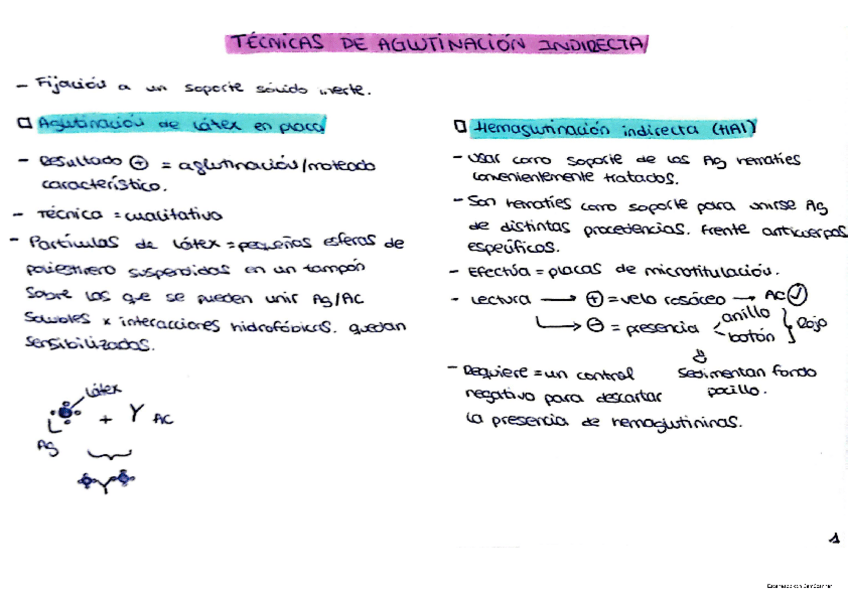 TÉCNICAS DE AGLUTINACIÓN INDIRECTA
- Fijación a un soporte sólido inerte.
Aglutinación de látex en placa
- Resultado ⊕ = aglutinación/moteado
característico.
- Técnica = cualitativa
- Partículas de látex = pequeñas esferas de
poliestireno suspendidas en un tampón
sobre las que se pueden unir Ag/AC
solubles x interacciones hidrofóbicas. quedan
sensibilizadas.
látex
+ Y AC
Ag
Hemaglutinación indirecta (HAI)
- Usar como soporte de los Ag hematíes
convenientemente tratados.
- Son hematíes como soporte para unirse Ag
de distintas procedencias. Frente anticuerpos
específicos.
- Efectúa = placas de microtitulación.
- Lectura → ⊕ = velo rosáceo → AC ✓
→ ⊖ = presencia anillo botón } Rojo
Sedimentan fondo
pocillo.
- Requiere = un control
negativo para descartar
la presencia de hemaglutininas.
1
Escaneado con CamScanner